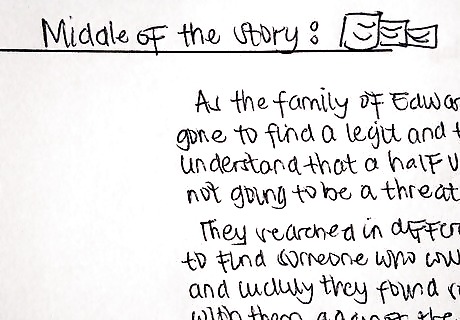 Middle of the story :
As the family of Edwar
gone to find a legit and t
understand that a half v
not going to be a threat
They reached in differ
to find someone who cou
and luckily they found s
with them against the